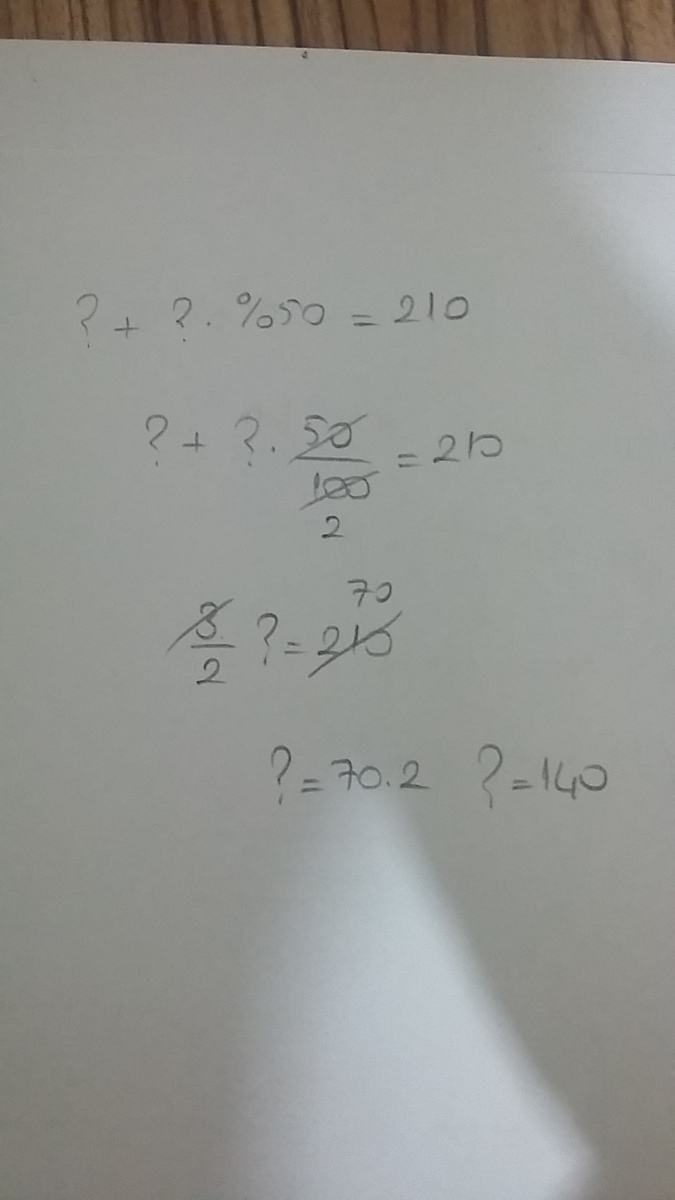 ? + ? . %50 = 210
? + ? . 50/100 = 210
2
70
3/2 ? = 210
? = 70.2 ? = 140